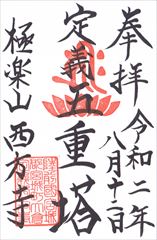 奉拝
令和二年
八月十二日
定義五重塔
極楽山 西方寺